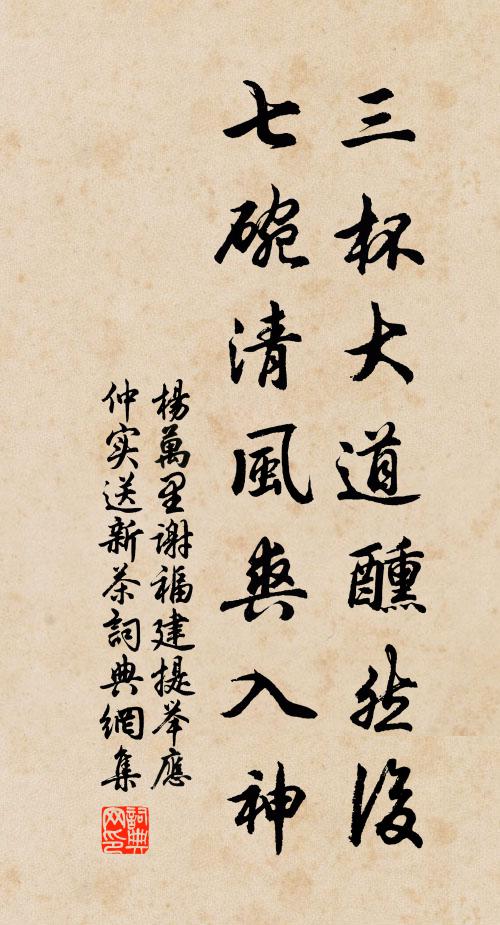 三杯大道醺然後
七碗清風爽入神
楊萬里謝福建提举應
仲实送新茶詞典網集
詞典网印